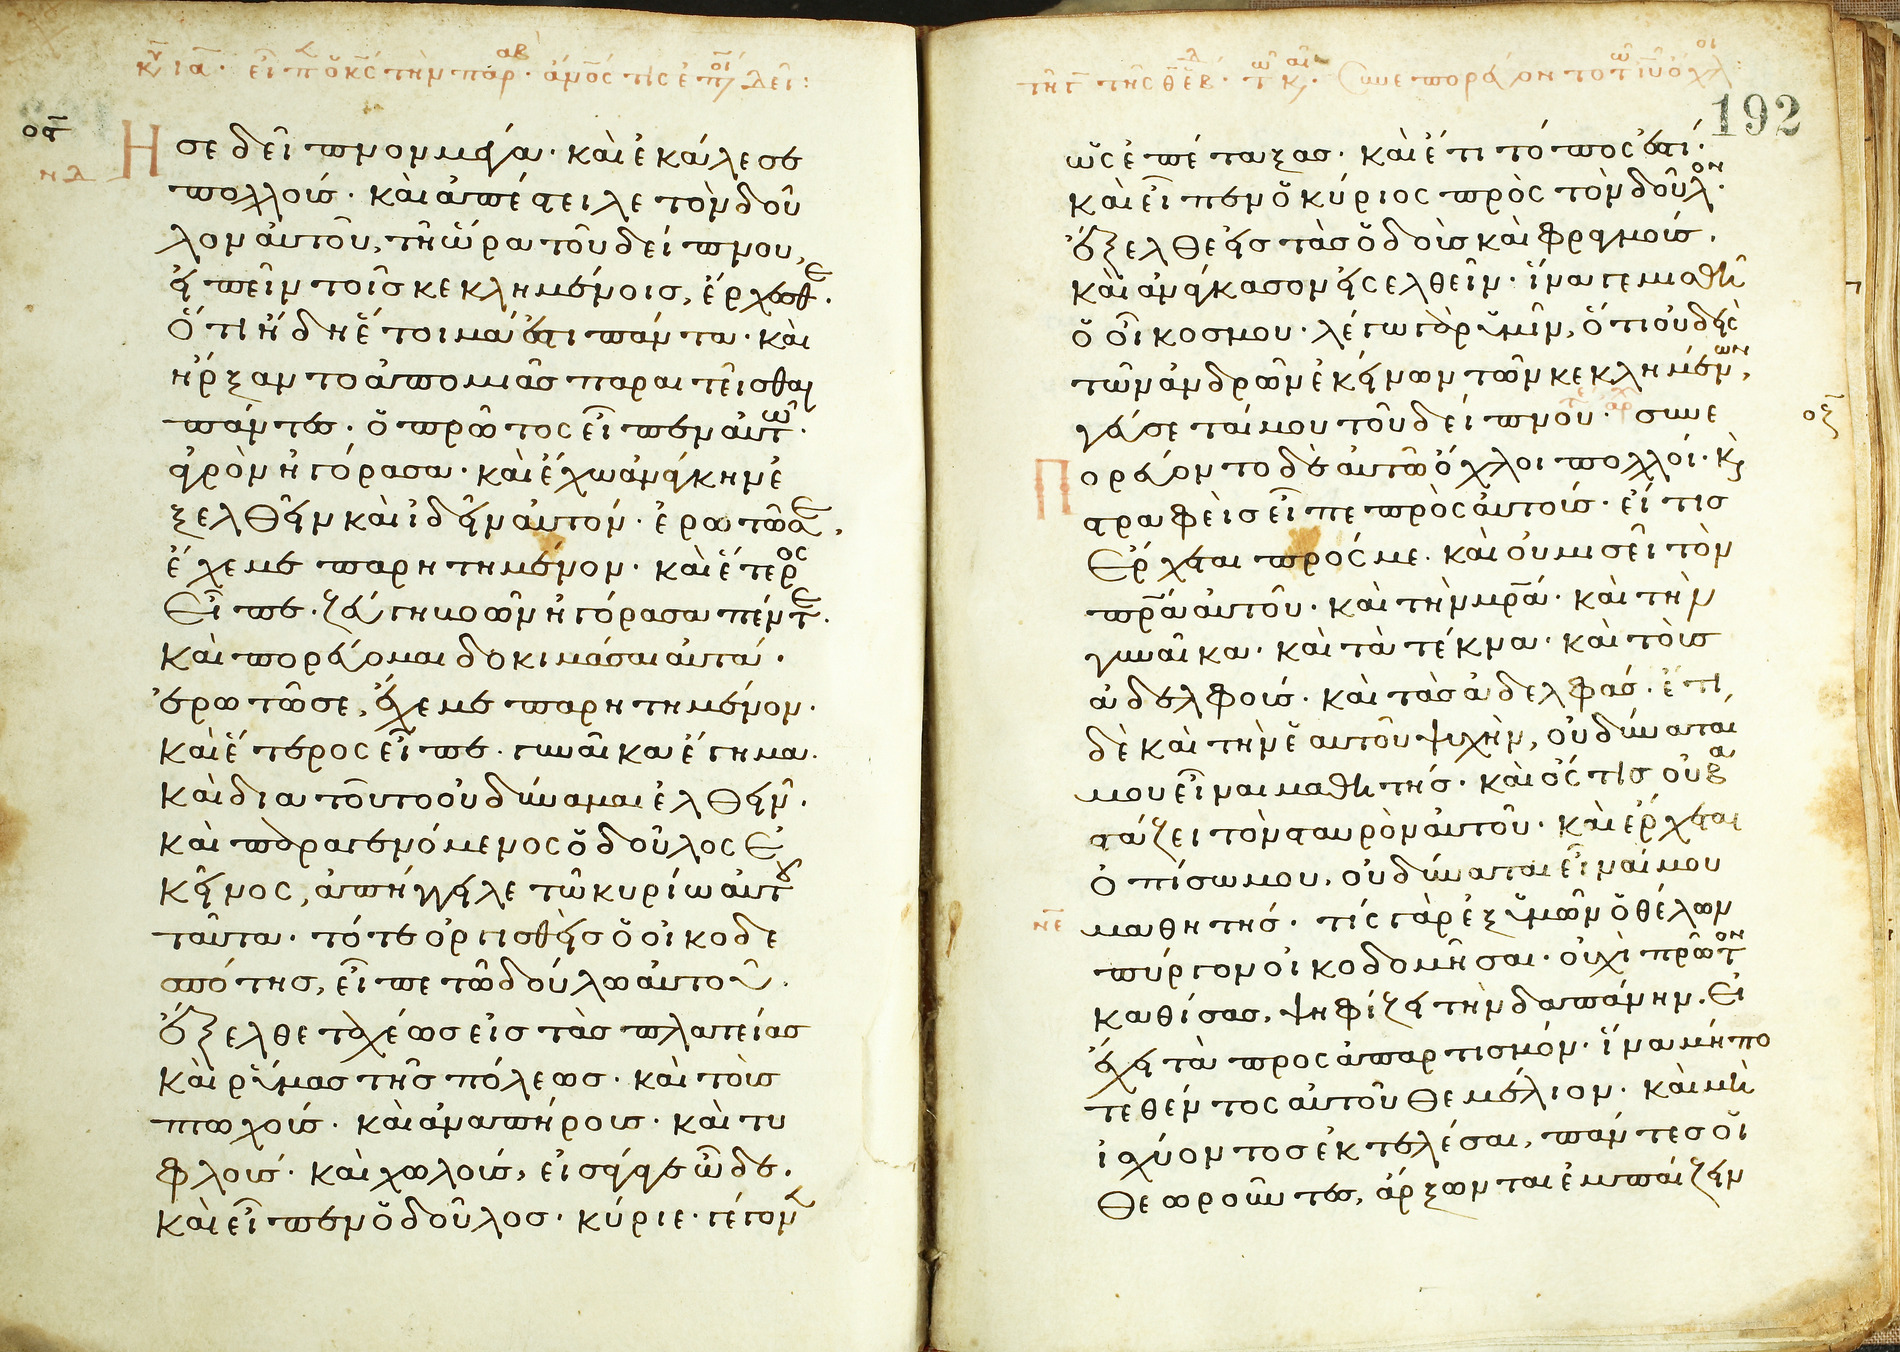 κυ ια· εἶπεν ὁ κς τὴν παραβ· ἀνος τις ἐποί δεῖ:
οϛ
νδ
Ησε δεῖπνον μέγα· καὶ ἐκάλεσε
πολλούς· καὶ ἀπέστειλε τὸν δοῦ
λον αὐτοῦ, τῆ ὥρα τοῦ δείπνου,
εἰπεῖν τοῖς κεκλημένοις, ἔρχεσθε·
ὅτι ἤδη ἕτοιμά ἐστι πάντα· καὶ
ἤρξαντο ἀπο μιᾶς παραιτεῖσθαι
πάντες· ὁ πρῶτος εἶπεν αὐτῶ·
ἀγρὸν ἠγόρασα· καὶ ἔχω ἀνάγκην ἐ
ξελθεῖν καὶ ἰδεῖν αὐτόν· ἐρωτῶ σε,
ἔχε με παρητημένον· καὶ ἕτερος
εἶπε· ζεύγη βοῶν ἠγόρασα πέντε·
καὶ πορεύομαι δοκιμάσαι αὐτά·
ἐρωτῶ σε, ἔχε με παρητημένον·
καὶ ἕτερος εἶπε· γυναῖκα ἔγημα·
καὶ δια τοῦτο οὐ δύναμαι ἐλθεῖν·
καὶ παραγενόμενος ὁ δοῦλος ἐ
κεῖνος, ἀπήγγειλε τῶ κυρίω αὐτοῦ
ταῦτα· τότε ὀργισθεὶς ὁ οἰκοδε
σπότης, εἶπε τῶ δούλω αὐτοῦ·
ἔξελθε ταχέως εἰς τὰς πλατείας
καὶ ρύμας τῆς πόλεως· καὶ τοὺς
πτωχούς· καὶ ἀναπήρους· καὶ τυ
φλούς· καὶ χωλούς, εἰσάγαγε ὧδε·
καὶ εἶπεν ὁ δοῦλος· κύριε· γέγονεν
192
ὡς ἐπέταξας· καὶ ἔτι τόπος ἐστί·
καὶ εἶπεν ὁ κύριος πρὸς τὸν δοῦλον·
ἔξελθε εἰς τὰς ὁδοὺς καὶ φραγμούς·
καὶ ἀνάγκασον εἰσελθεῖν· ἵνα γεμισθῆ
ὁ οἶκος μου· λέγω γὰρ ὑμῖν, ὅτι οὐδεὶς
τῶν ἀνδρῶν ἐκείνων τῶν κεκλημένων,
γεύσεταί μου τοῦ δείπνου· συνε
οζ
Πορεύοντο δὲ αὐτῶ ὄχλοι πολλοί· κὶ
στραφεὶς εἶπε πρὸς αὐτούς· εἴ τις
ἔρχεται πρός με· καὶ οὐ μισεῖ τὸν
πρα αὐτοῦ· καὶ τὴν μρα· καὶ τὴν
γυναῖκα· καὶ τὰ τέκνα· καὶ τοὺς
ἀδελφούς· καὶ τὰς ἀδελφάς· ἔτι,
δὲ καὶ τὴν ἑαυτοῦ ψυχὴν, οὐ δύναταί
μου εἶναι μαθητής· καὶ ὅς τις οὐ βα
στάζει τὸν σταυρὸν αὐτοῦ· καὶ ἔρχεται
ὀπίσω μου, οὐ δύναται εἶναί μου
νε
μαθητής· τίς γὰρ ἐξ ὑμῶν ὁ θέλων
πύργον οἰκοδομῆσαι· οὐχὶ πρῶτον
καθίσας, ψηφίζει τὴν δαπάνην· εἰ
ἔχει τὰ προς ἀπαρτισμόν· ἵνα μήπο
τε θέντος αὐτοῦ θεμέλιον· καὶ μὴ
ἰσχύοντος ἐκτελέσαι, πάντες οἱ
θεωροῦντες, ἄρξωνται ἐμπαίζειν